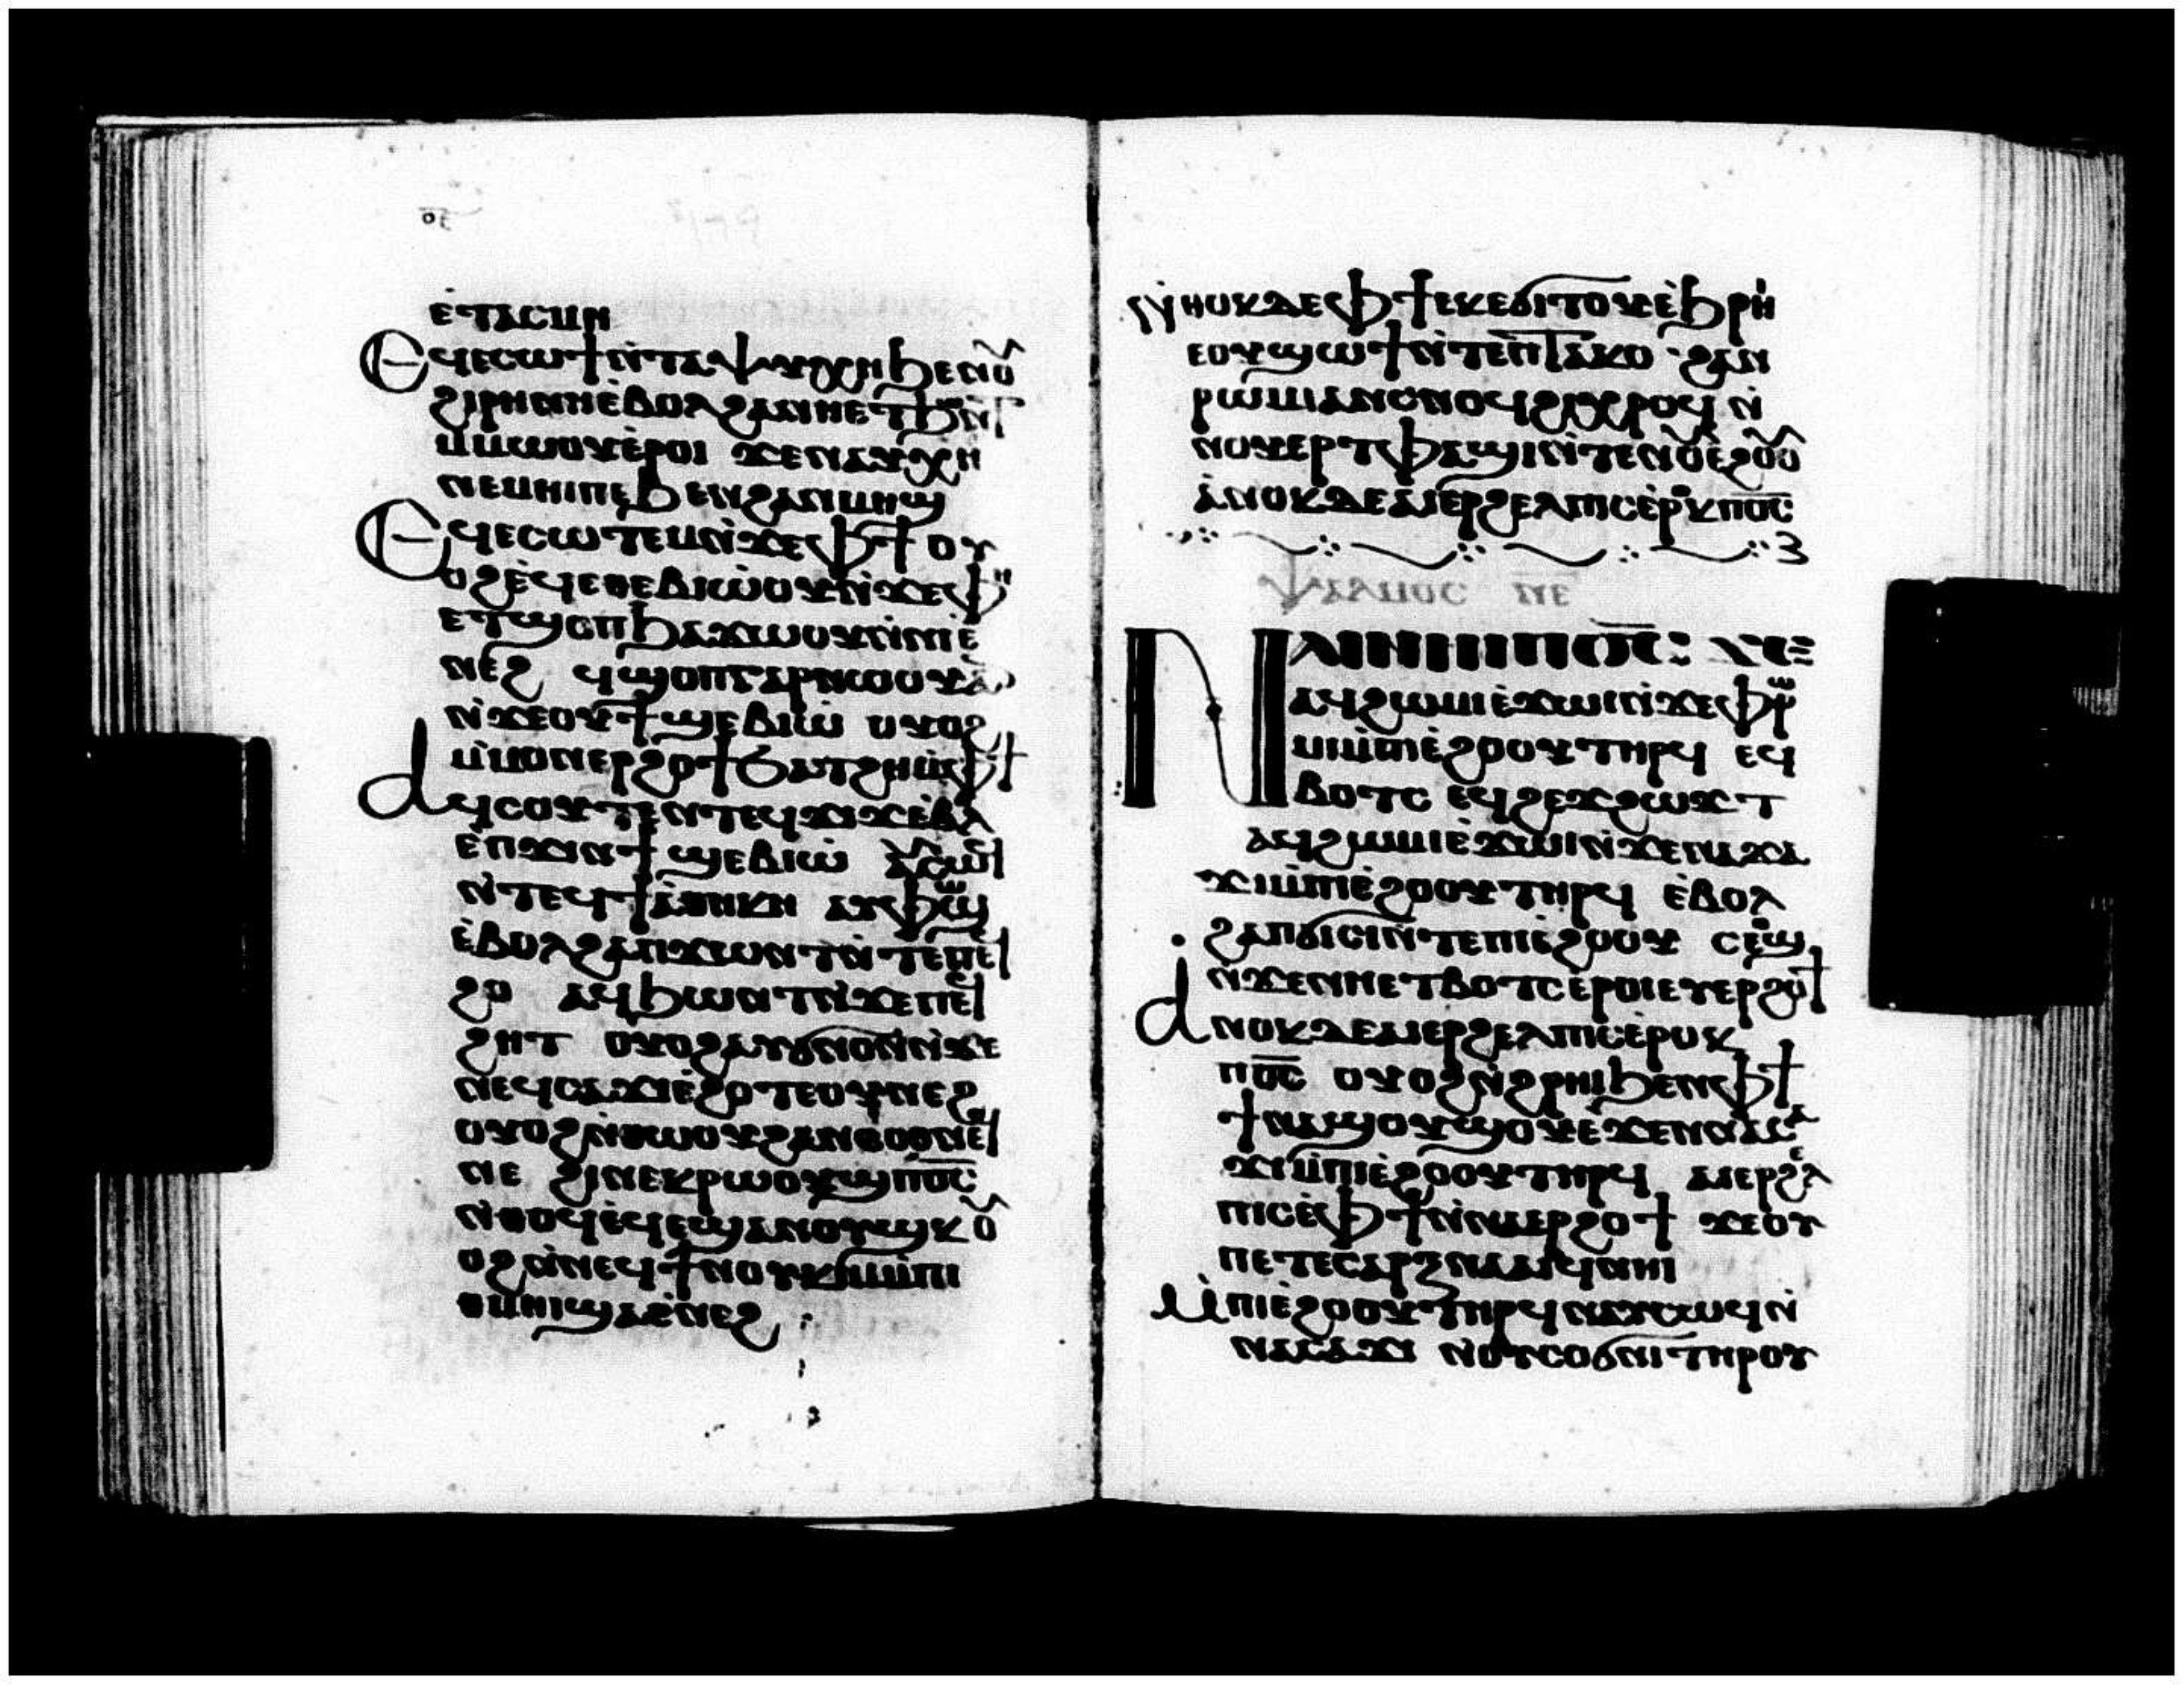 ⲉ̀ⲧⲁⲥⲙⲏ
Ⲉϥⲉⲥⲱϯⲛ̀ⲧⲁⲯⲩⲭⲏϧⲉⲛⲟⲩ
ϩⲓⲣⲏⲛⲏⲉ̀ⲃⲟⲗϩⲁⲛⲏⲉⲧϧⲱⲛⲧ
ⲙ̀ⲙⲱⲟⲩⲉ̀ⲣⲟⲓ ϫⲉⲛⲁⲩⲭⲏ
ⲛⲉⲙⲏⲓⲡⲉϧⲉⲛϩⲁⲛⲙⲏϣ
Ⲉϥⲉⲥⲱⲧⲉⲙⲛ̀ϫⲉⲫϯ ⲟⲩ
ⲟϩⲉ̀ϥⲉⲑⲉⲃⲓⲱ̀ⲟⲩⲛ̀ϫⲉⲫⲏ
ⲉⲧϣⲟⲡϧⲁϫⲱⲟⲩⲛ̀ⲛⲓⲉ̀
ⲛⲉϩ ϥϣⲟⲡⲅⲁⲣⲛⲱⲟⲩⲁⲛ
ⲛ̀ϫⲉⲟⲩϯϣⲉⲃⲓⲱ̀ ⲟⲩⲟϩ
ⲙ̀ⲡⲟⲩⲉⲣϩⲟϯϧⲁⲧϩⲏⲙ̀ⲫϯ
Ⲁϥⲥⲟⲩⲧⲉⲛⲧⲉϥϫⲓϫⲉ̀ⲃⲗ
ⲉ̀ⲡϫⲓⲛϯϣⲉⲃⲓⲱ̀ ⲁⲩⲥⲱϥ
ⲛ̀ⲧⲉϥⲇⲓⲁ̀ⲑⲏⲕⲏ ⲁⲩⲫⲱϣ
ⲉ̀ⲃⲟⲗϩⲁⲡϫⲱⲛⲧⲛ̀ⲧⲉⲡⲉϥ
ϩⲟ ⲁϥϧⲱⲛⲧⲛ̀ϫⲉⲡⲉϥ
ϩⲏⲧ ⲟⲩⲟϩⲁⲩϭⲛⲟⲛⲛ̀ϫⲉ
ⲛⲉϥⲥⲁϫⲓⲉ̀ϩⲟⲧⲉⲟⲩⲛⲉϩ
ⲟⲩⲟϩⲛ̀ⲑⲱⲟⲩϩⲁⲛⲥⲟⲑⲛⲉϥ
ⲛⲉ ϩⲓⲡⲉⲕⲣⲱⲟⲩϣⲡⲟ̅ⲥ̅
ⲛ̀ⲑⲟϥⲉ̀ϥⲉϣⲁⲛⲟⲩϣⲕ ⲟⲩ
ⲟϩⲛ̀ⲛⲉϥϯⲛⲟⲩⲕⲓⲙⲙ̀ⲡⲓ
ⲑⲙⲏⲓϣⲁⲉ̀ⲛⲉϩ
ⲛ̀ⲑⲟⲕⲇⲉⲫϯⲉⲕⲉϭⲓⲧⲟⲩⲉ̀ϧⲣⲏ
ⲉⲟⲩϣⲱϯⲛ̀ⲧⲉⲡⲧⲁⲕⲟ ϩⲁⲛ
ⲣⲱⲙⲓⲁⲛⲥⲛⲟϥϩⲓⲭⲣⲟϥ ⲛ̀
ⲛⲟⲩⲉⲣⲧⲫⲁϣⲓⲛ̀ⲧⲉⲛⲟⲩⲉ̀ϩⲟⲟⲩ
ⲁ̀ⲛⲟⲕⲇⲉⲁⲓⲉⲣϩⲉⲗⲡⲓⲥⲉ̀ⲣⲟⲕⲡⲟ̅ⲥ̅
ⲯⲁⲗⲙⲟⲥ ⲛ̅ⲉ̅
Ⲛⲁⲓⲛⲏⲓⲡⲟ̅ⲥ̅ ϫⲉ
ⲁϥϩⲱⲙⲓⲉ̀ϫⲱⲓⲛ̀ϫⲉⲫⲣⲱ
ⲙⲓⲙ̀ⲡⲓⲉ̀ϩⲟⲟⲩⲧⲏⲣϥ ⲉϥ
ⲃⲟⲧⲥ ⲉϥϩⲉϫϩⲱϫⲧ
ⲁϥϩⲱⲙⲓⲉ̀ϫⲱⲓⲛ̀ϫⲉⲛⲁϫⲁ
ϫⲓⲙ̀ⲡⲓⲉ̀ϩⲟⲟⲩⲧⲏⲣϥ ⲉ̀ⲃⲟⲗ
ϩⲁⲡϭⲓⲥⲓⲛ̀ⲧⲉⲡⲓⲉ̀ϩⲟⲟⲩ ⲥⲉⲟϣ
ⲛ̀ϫⲉⲛⲏⲉⲧⲃⲟⲧⲥⲉ̀ⲣⲟⲓⲉⲩⲉⲣϩⲟϯ
Ⲁⲛⲟⲕⲇⲉⲁⲓⲉⲣϩⲉⲗⲡⲓⲥⲉ̀ⲣⲟⲕ
ⲡⲟ̅ⲥ̅ ⲟⲩⲟϩⲛ̀ϩⲣⲏⲓϧⲉⲛⲫϯ
ϯⲛⲁϣⲟⲩϣⲟⲩⲉ̀ϫⲉⲛⲛⲁⲥⲁ
ϫⲓⲙ̀ⲡⲓⲉ̀ϩⲟⲟⲩⲧⲏⲣϥ ⲁⲓⲉⲣϩⲉⲗ
ⲡⲓⲥⲉ̀ⲫϯⲛ̀ⲛⲁⲉⲣϩⲟϯ ϫⲉⲟⲩ
ⲡⲉⲧⲉⲥⲁⲣⲝⲛⲁⲁⲓϥⲛⲏⲓ
Ⲙ̀ⲡⲓⲉ̀ϩⲟⲟⲩⲧⲏⲣϥⲛⲁⲩⲥⲱϥⲛ̀
ⲛⲁⲥⲁϫⲓ ⲛⲟⲩⲥⲟϭⲛⲓⲧⲏⲣⲟⲩ